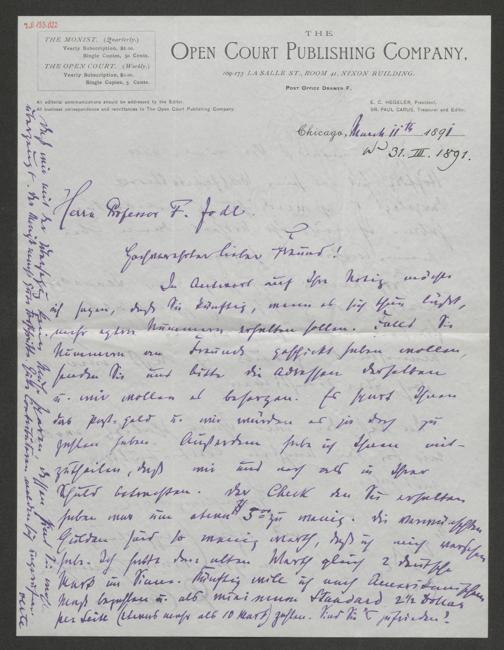 THE MONIST. (Quarterly.)
Yearly Subscription, $2.00.
Single Copies, 50 Cents.
THE OPEN COURT. (Weekly.)
Yearly Subscription, $2.00.
Single Copies, 5 Cents.
THE
OPEN COURT PUBLISHING COMPANY,
169-175 LA SALLE ST., ROOM 41, NIXON BUILDING.
POST OFFICE DRAWER F.
All editorial communications should be addressed to the Editor.
All business correspondence and remittances to The Open Court Publishing Company.
E. C. HEGELER, President.
DR. PAUL CARUS, Treasurer and Editor.
Chicago, March 11th 1891
31. III. 1891.
Herrn Professor F. Jodl.
Hochverehrter lieber Freund!
In Antwort auf Ihre Notiz möchte
ich sagen, daß Sie künftig, wenn es sich thun läßt,
mehr extra Nummern erhalten sollen. Falls Sie
Nummern an Freunde geschickt haben wollen,
senden Sie uns bitte die Adressen derselben
u. wir wollen es besorgen. Es spart Ihnen
das Postgeld u. wir würden es ja doch zu
zahlen haben. Außerdem habe ich Ihnen mit-
zutheilen, daß wir uns noch als in Ihrer
Schuld betrachten. Der Check den Sie erhalten
haben war um etwa $5.00 zu wenig. Die
Gulden sind so wenig werth, daß ich mich
habe. Ich hatte den alten Werth gleich 2 deutsche
Mark im Sinne. Künftig will ich nach Amerikanischem
Maß bezahlen u. als minimum Standard 2½ Dollar
per Seite (etwas mehr als 10 Mark) zahlen. Sind Sie zufrieden?